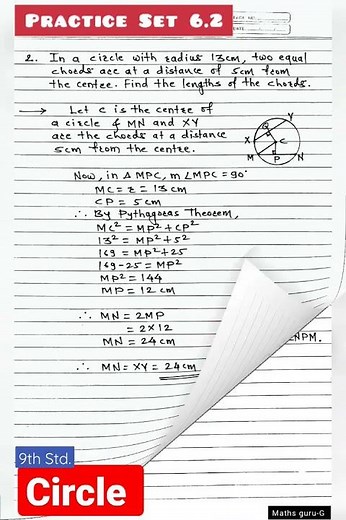 PRACTICE SET 6.2
DATE
2. In a circle with radius 13cm, two equal
chords are at a distance of 5cm from
the centre. Find the lengths of the chords.
→ Let C is the centre of
a circle & MN and XY
are the chords at a distance
5cm from the centre.
Y
Q
X
C
M
P
N
Now, in Δ MPC, m∠MPC = 90°
MC = r = 13 cm
CP = 5 cm
∴ By Pythagoras Theorem,
MC² = MP² + CP²
13² = MP² + 5²
169 = MP² + 25
169 - 25 = MP²
MP² = 144
MP = 12 cm
∴ MN = 2MP
= 2 × 12
MN = 24 cm
NPM.
∴ MN = XY = 24 cm
9th Std.
Circle
Maths guru-G